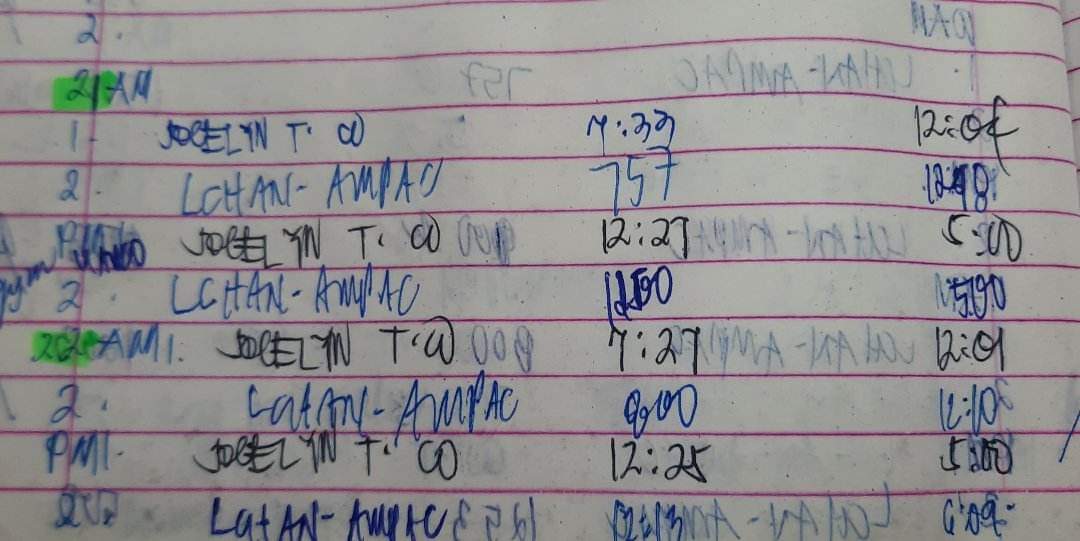 2.
21 AM
1. JOCELYN T. CO 7:33 12:04
2. LCHAN-AMPAC 757
PM JOCELYN T. CO 12:27 5:00
2. LCHAN-AMPAC 500
22 AM 1. JOCELYN T. CO 7:27 12:01
2. LCHAN-AMPAC 8:00 12:10
PM 1. JOCELYN T. CO 12:25 5:00
2 LCHAN-AMPAC 12:13